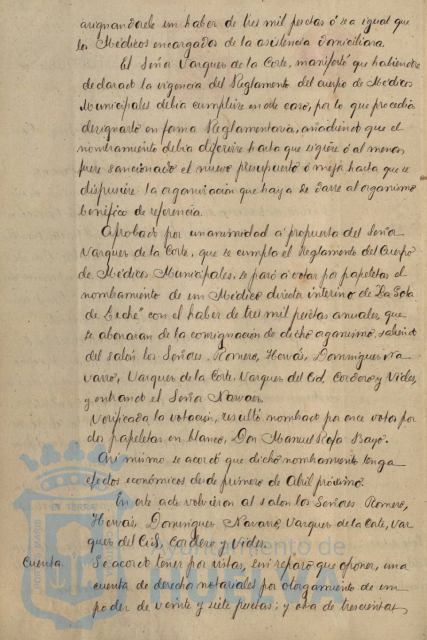 asignandosele un haber de tres mil pesetas ó sea igual que
los Médicos encargados de la asistencia domiciliaria.
El Señor Vazquez de la Corte, manifestó que habiendose
declarado la vigencia del Reglamento del cuerpo de Médicos
Municipales debia cumplirse en este caso, por lo que procedia
designarlo en forma Reglamentaria, añadiendo que el
nombramiento debia diferirse hasta que rigiere ó al menos
fuere sancionado el nuevo presupuesto ó mejor hasta que se
dispusiere la organización que haya de darse al organismo
benéfico de referencia.
Aprobado por unanimidad á propuesta del Señor
Vazquez de la Corte, que se cumpla el Reglamento del Cuerpo
de Médicos Municipales, se pasó á votar por papeletas el
nombramiento de un Médico director interino de "La Gota
de Leche" con el haber de tres mil pesetas anuales que
se abonaran de la consignación de dicho organismo, saliendo
del salón los Señores Romero, Hervás, Dominguez Na
varro, Vazquez de la Corte, Vazquez del Cid, Cordero y Vides,
y entrando el Señor Narvaez.
Verificada la votación, resultó nombrado por once votos por
dos papeletas en blanco, Don Manuel Rioja Bayo.
Asi mismo se acordó que dicho nombramiento tenga
efectos económicos desde primero de Abril próximo.
En este acto volvieron al salon los Señores Romero,
Hervás, Dominguez Navarro, Vazquez de la Corte, Vaz
quez del Cid, Cordero y Vides.
Cuenta. Se acordó tener por vistas, sin reparo que oponer, una
cuenta de derechos notariales por otorgamiento de un
poder de veinte y siete pesetas; y otra de trescientas
Ayuntamiento de
HUELVA